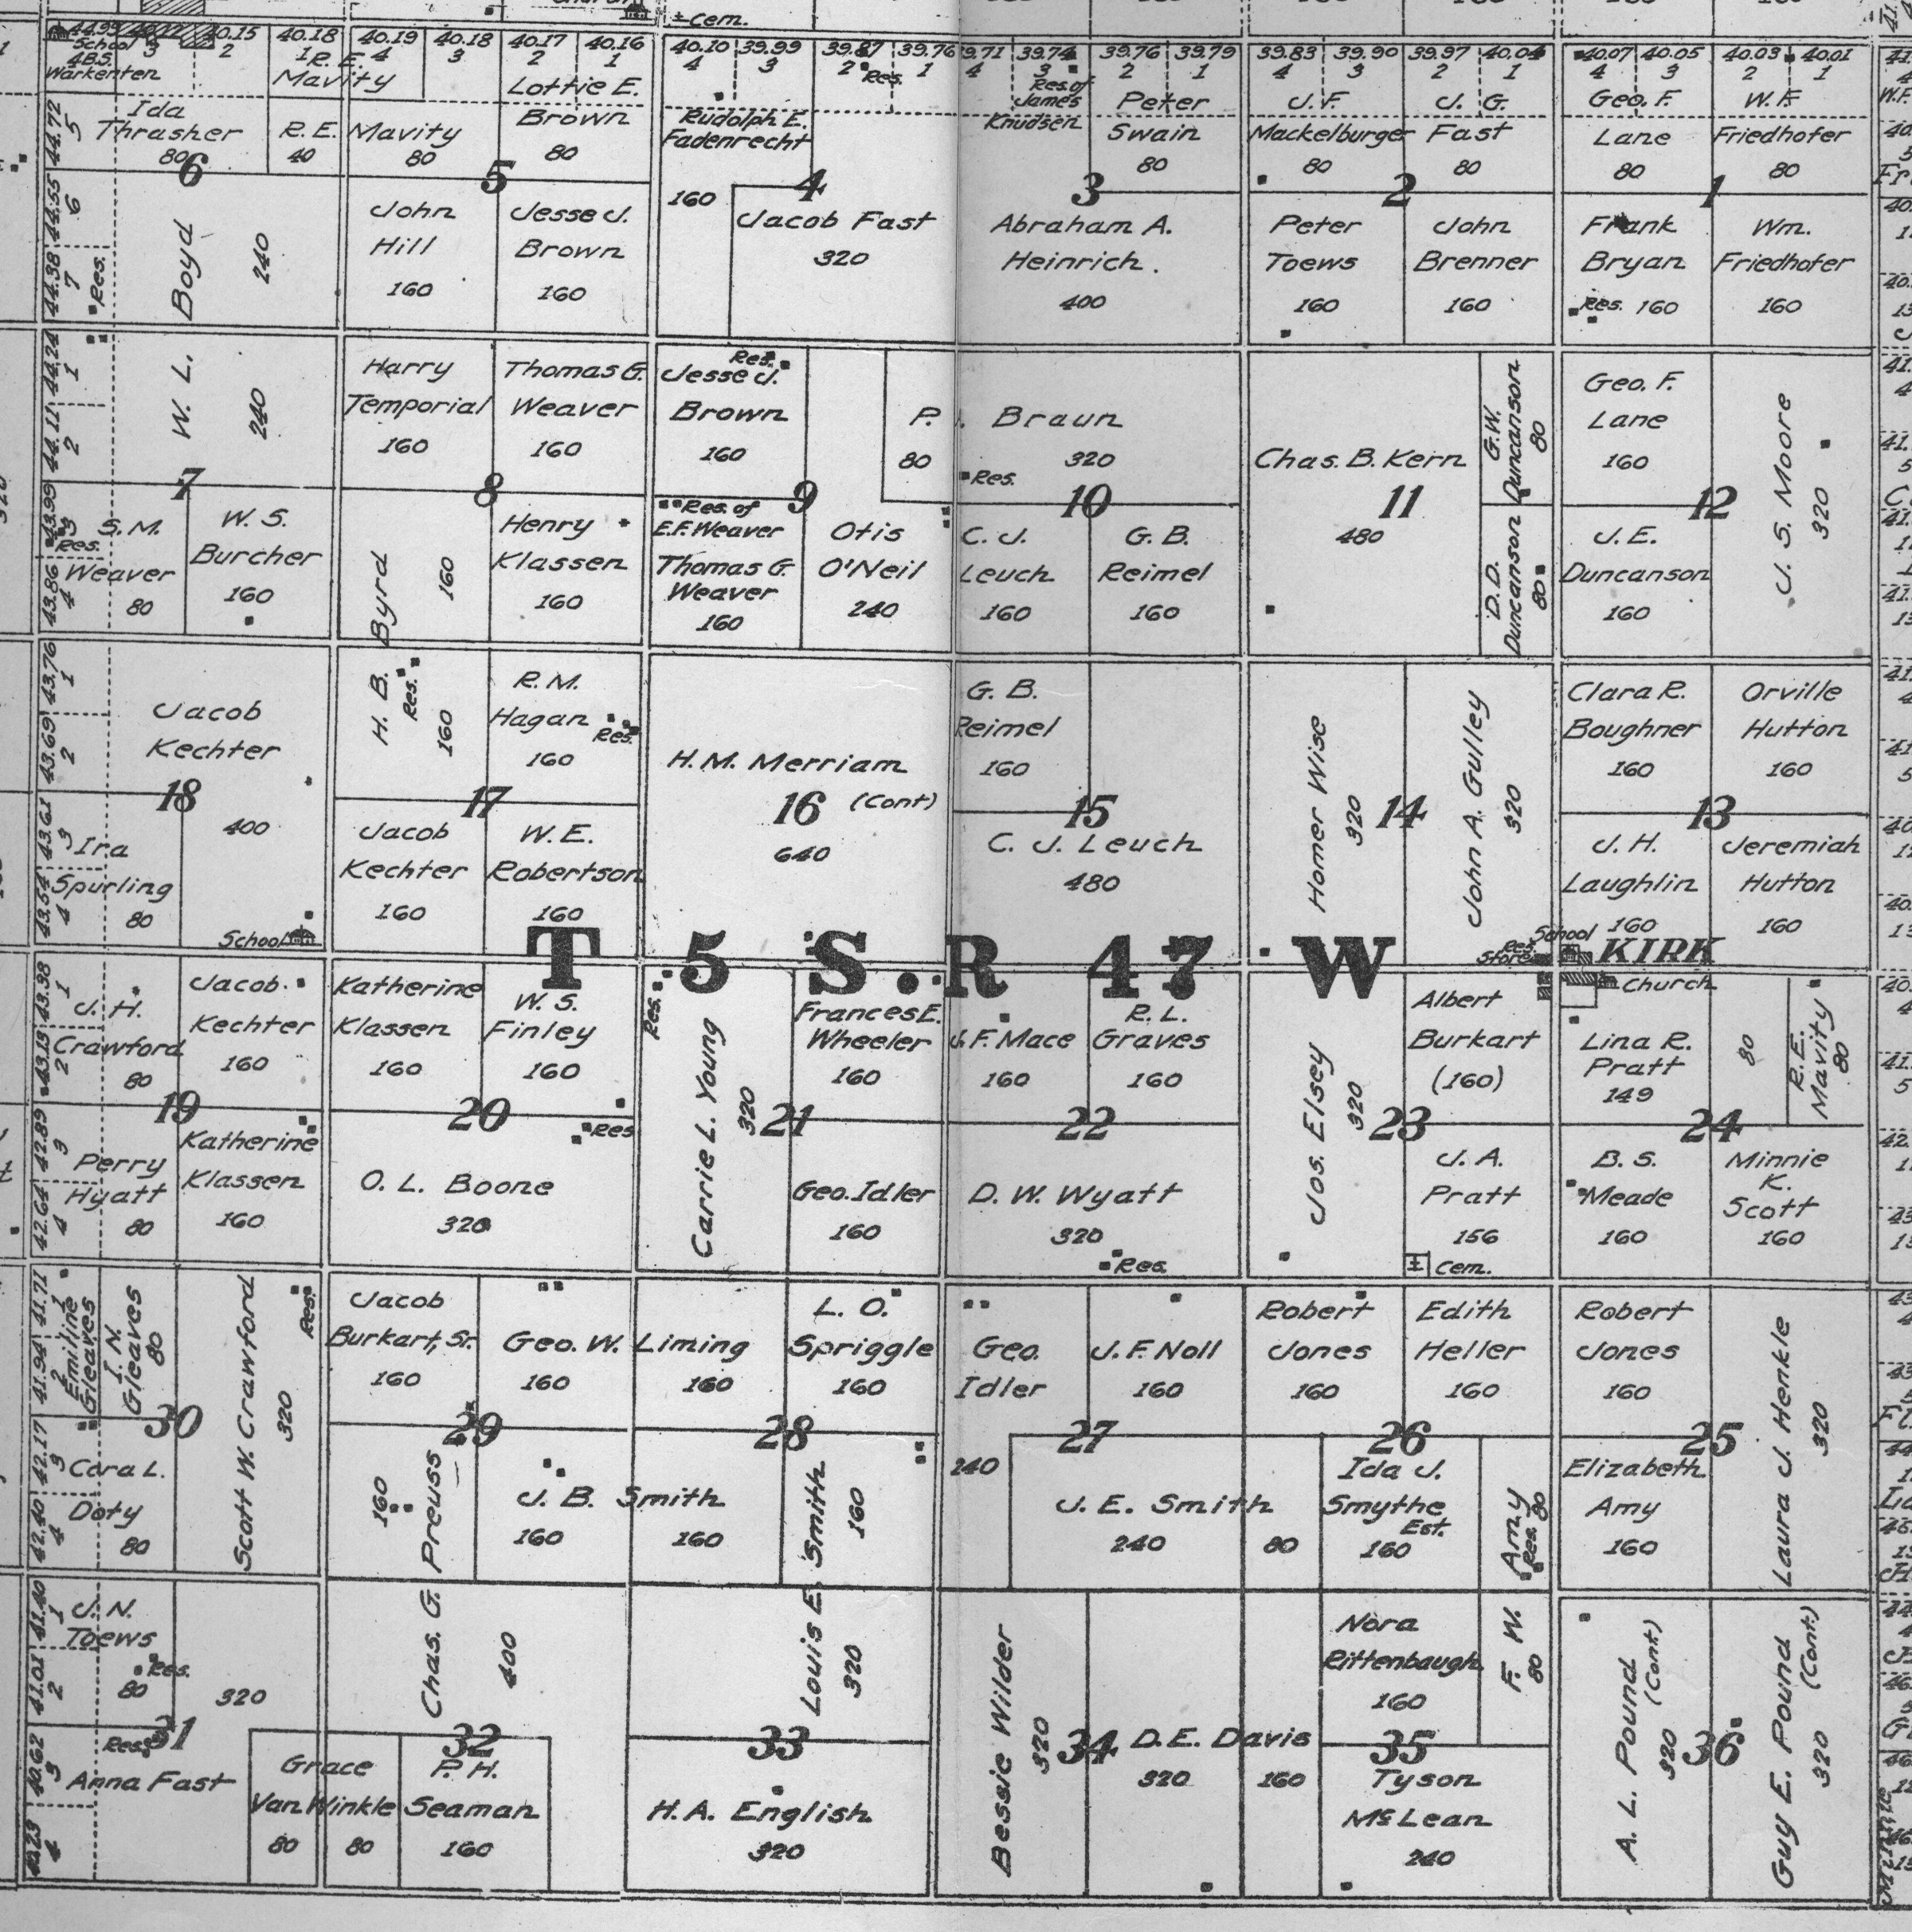 Cem.
44.99 40.12 40.15 40.18 40.19 40.18 40.17 40.16 40.10 39.99 39.87 39.76 39.71 39.74 39.76 39.79 39.83 39.90 39.97 40.04 40.07 40.05 40.03 40.01
3 2 1 4 3 2 1 4 3 2 1 4 3 2 1 4 3 2 1 4 3 2 1
School
4 B.S.
Warkenten
R. E.
Mavity
Lottie E.
Brown
80
Res.
Res. of
James
Knudsen
Peter
Swain
80
J. F.
Mackelburger
80
J. G.
Fast
80
Geo. F.
Lane
80
W. F.
Friedhofer
80
44.72
5
Ida
Thrasher
80
R. E.
40
Mavity
80
Rudolph E.
Fadenrecht
160
6
5
4
3
2
1
44.55
6
44.38
7
Res.
Boyd
240
John
Hill
160
Jesse J.
Brown
160
Jacob Fast
320
Abraham A.
Heinrich
400
Peter
Toews
160
John
Brenner
160
Frank
Bryan
Res. 160
Wm.
Friedhofer
160
44.24
1
44.11
2
W. L.
240
Harry
Temporial
160
Thomas G.
Weaver
160
Res.
Jesse J.
Brown
160
P. J. Braun
80
320
Res.
Chas. B. Kern
480
G. W.
Duncanson
80
Geo. F.
Lane
160
J. S. Moore
320
7
8
9
10
11
12
43.99
3
Res.
43.86
4
S. M.
Weaver
80
W. S.
Burcher
160
Byrd
160
Henry
Klassen
160
Res. of
E.F. Weaver
Thomas G.
Weaver
160
Otis
O'Neil
240
C. J.
Leuch
160
G. B.
Reimel
160
D. D.
Duncanson
80
J. E.
Duncanson
160
43.76
1
43.69
2
Jacob
Kechter
400
H. B.
Res.
160
R. M.
Hagan
Res.
160
H. M. Merriam
(Cont)
640
G. B.
Reimel
160
Homer Wise
320
John A. Gulley
320
Clara R.
Boughner
160
Orville
Hutton
160
18
17
16
15
14
13
43.61
3
43.54
4
Ira
Spurling
80
School
Jacob
Kechter
160
W. E.
Robertson
160
C. J. Leuch
480
J. H.
Laughlin
160
Jeremiah
Hutton
160
T 5 S. R 47 W
School
Res.
Store
KIRK
Church
43.38
1
43.13
2
J. H.
Crawford
80
Jacob
Kechter
160
Katherine
Klassen
160
W. S.
Finley
160
Res.
Carrie L. Young
320
Frances E.
Wheeler
160
J. F. Mace
160
R. L.
Graves
160
Jos. Elsey
320
Albert
Burkart
(160)
Lina R.
Pratt
149
80
R. E.
Mavity
80
19
20
21
22
23
24
42.89
3
42.64
4
Perry
Hyatt
80
Katherine
Klassen
160
Res
O. L. Boone
320
Geo. Idler
160
D. W. Wyatt
320
Res.
J. A.
Pratt
156
Cem.
B. S.
Meade
160
Minnie
K.
Scott
160
41.71
1
41.94
2
Emiline
Gleaves
I. N.
Gleaves
80
Scott W. Crawford
320
Res.
Jacob
Burkart, Sr.
160
Geo. W. Liming
160
160
L. O.
Spriggle
160
Geo.
Idler
240
J. F. Noll
160
Robert
Jones
160
Edith
Heller
160
Robert
Jones
160
Laura J. Henkle
320
30
29
28
27
26
25
42.17
3
42.40
4
Cora L.
Doty
80
160
Preuss
J. B. Smith
160
160
Smith
160
J. E. Smith
240
80
Ida J.
Smythe
Est.
160
Amy
Res.
80
Elizabeth
Amy
160
41.40
1
41.01
2
J. N.
Toews
80
Res.
320
Chas. G.
400
Louis E.
320
Bessie Wilder
320
Nora
Rittenbaugh
160
F. W.
80
A. L. Pound
(Cont)
320
Guy E. Pound
(Cont)
320
31
32
33
34
35
36
40.62
3
40.23
4
Res.
Anna Fast
Grace
Van Winkle
80
80
P. H.
Seaman
160
H. A. English
320
D. E. Davis
320
160
Tyson
McLean
240
Minnie